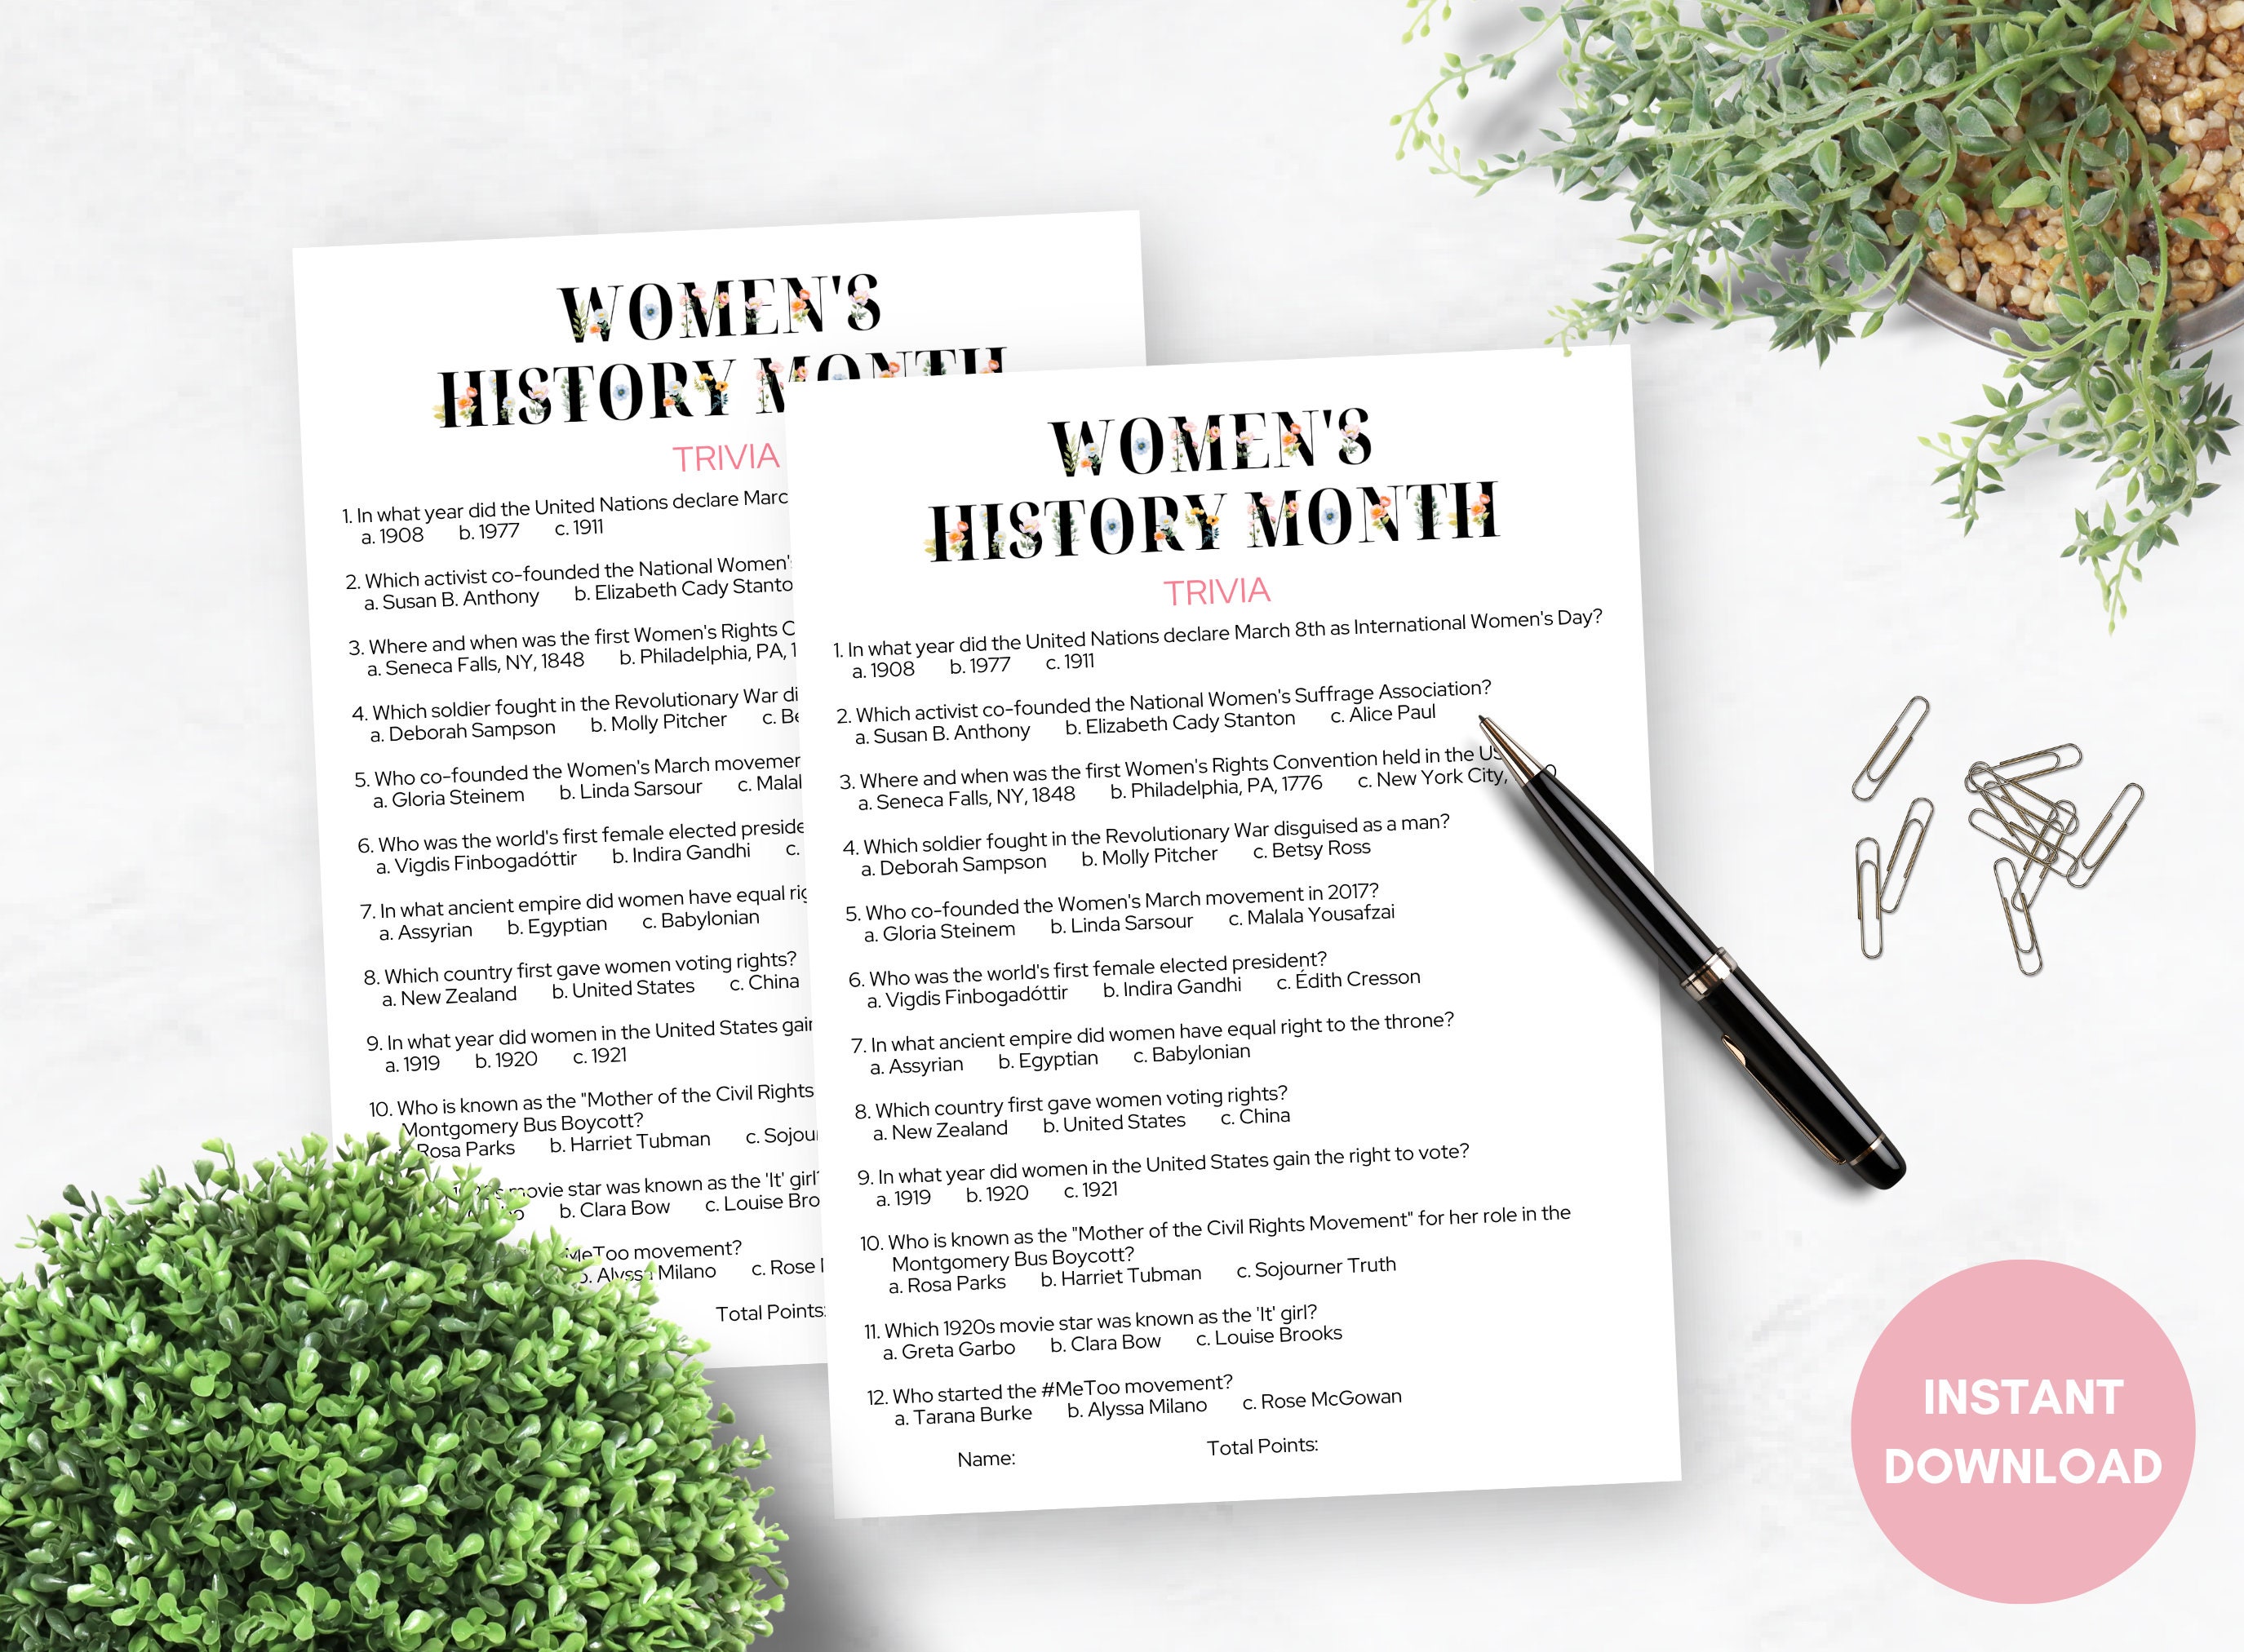 WOMEN'S
HISTORY MONTH
TRIVIA
1. In what year did the United Nations declare
a. 1908 b. 1977 c. 1911
2. Which activist co-founded the National Women's
a. Susan B. Anthony b. Elizabeth Cady
3. Where and when was the first Women's Rights
a. Seneca Falls, NY, 1848 b. Philadelphia, PA,
4. Which soldier fought in the Revolutionary War
a. Deborah Sampson b. Molly Pitcher c.
5. Who co-founded the Women's March
a. Gloria Steinem b. Linda Sarsour c.
6. Who was the world's first female elected
a. Vigdis Finbogadóttir b. Indira Gandhi c.
7. In what ancient empire did women have equal
a. Assyrian b. Egyptian c. Babylonian
8. Which country first gave women voting rights?
a. New Zealand b. United States c. China
9. In what year did women in the United States
a. 1919 b. 1920 c. 1921
10. Who is known as the "Mother of the Civil Rights
Montgomery Bus Boycott?
Rosa Parks b. Harriet Tubman c.
movie star was known as the 'It' girl?
b. Clara Bow c. Louise
MeToo movement?
b. Alyssa Milano c. Rose
Total Points:
WOMEN'S
HISTORY MONTH
TRIVIA
1. In what year did the United Nations declare March 8th as International Women's Day?
a. 1908 b. 1977 c. 1911
2. Which activist co-founded the National Women's Suffrage Association?
a. Susan B. Anthony b. Elizabeth Cady Stanton c. Alice Paul
3. Where and when was the first Women's Rights Convention held in the
a. Seneca Falls, NY, 1848 b. Philadelphia, PA, 1776 c. New York City,
4. Which soldier fought in the Revolutionary War disguised as a man?
a. Deborah Sampson b. Molly Pitcher c. Betsy Ross
5. Who co-founded the Women's March movement in 2017?
a. Gloria Steinem b. Linda Sarsour c. Malala Yousafzai
6. Who was the world's first female elected president?
a. Vigdis Finbogadóttir b. Indira Gandhi c. Édith Cresson
7. In what ancient empire did women have equal right to the throne?
a. Assyrian b. Egyptian c. Babylonian
8. Which country first gave women voting rights?
a. New Zealand b. United States c. China
9. In what year did women in the United States gain the right to vote?
a. 1919 b. 1920 c. 1921
10. Who is known as the "Mother of the Civil Rights Movement" for her role in the
Montgomery Bus Boycott?
a. Rosa Parks b. Harriet Tubman c. Sojourner Truth
11. Which 1920s movie star was known as the 'It' girl?
a. Greta Garbo b. Clara Bow c. Louise Brooks
12. Who started the #MeToo movement?
a. Tarana Burke b. Alyssa Milano c. Rose McGowan
Name: Total Points:
INSTANT
DOWNLOAD